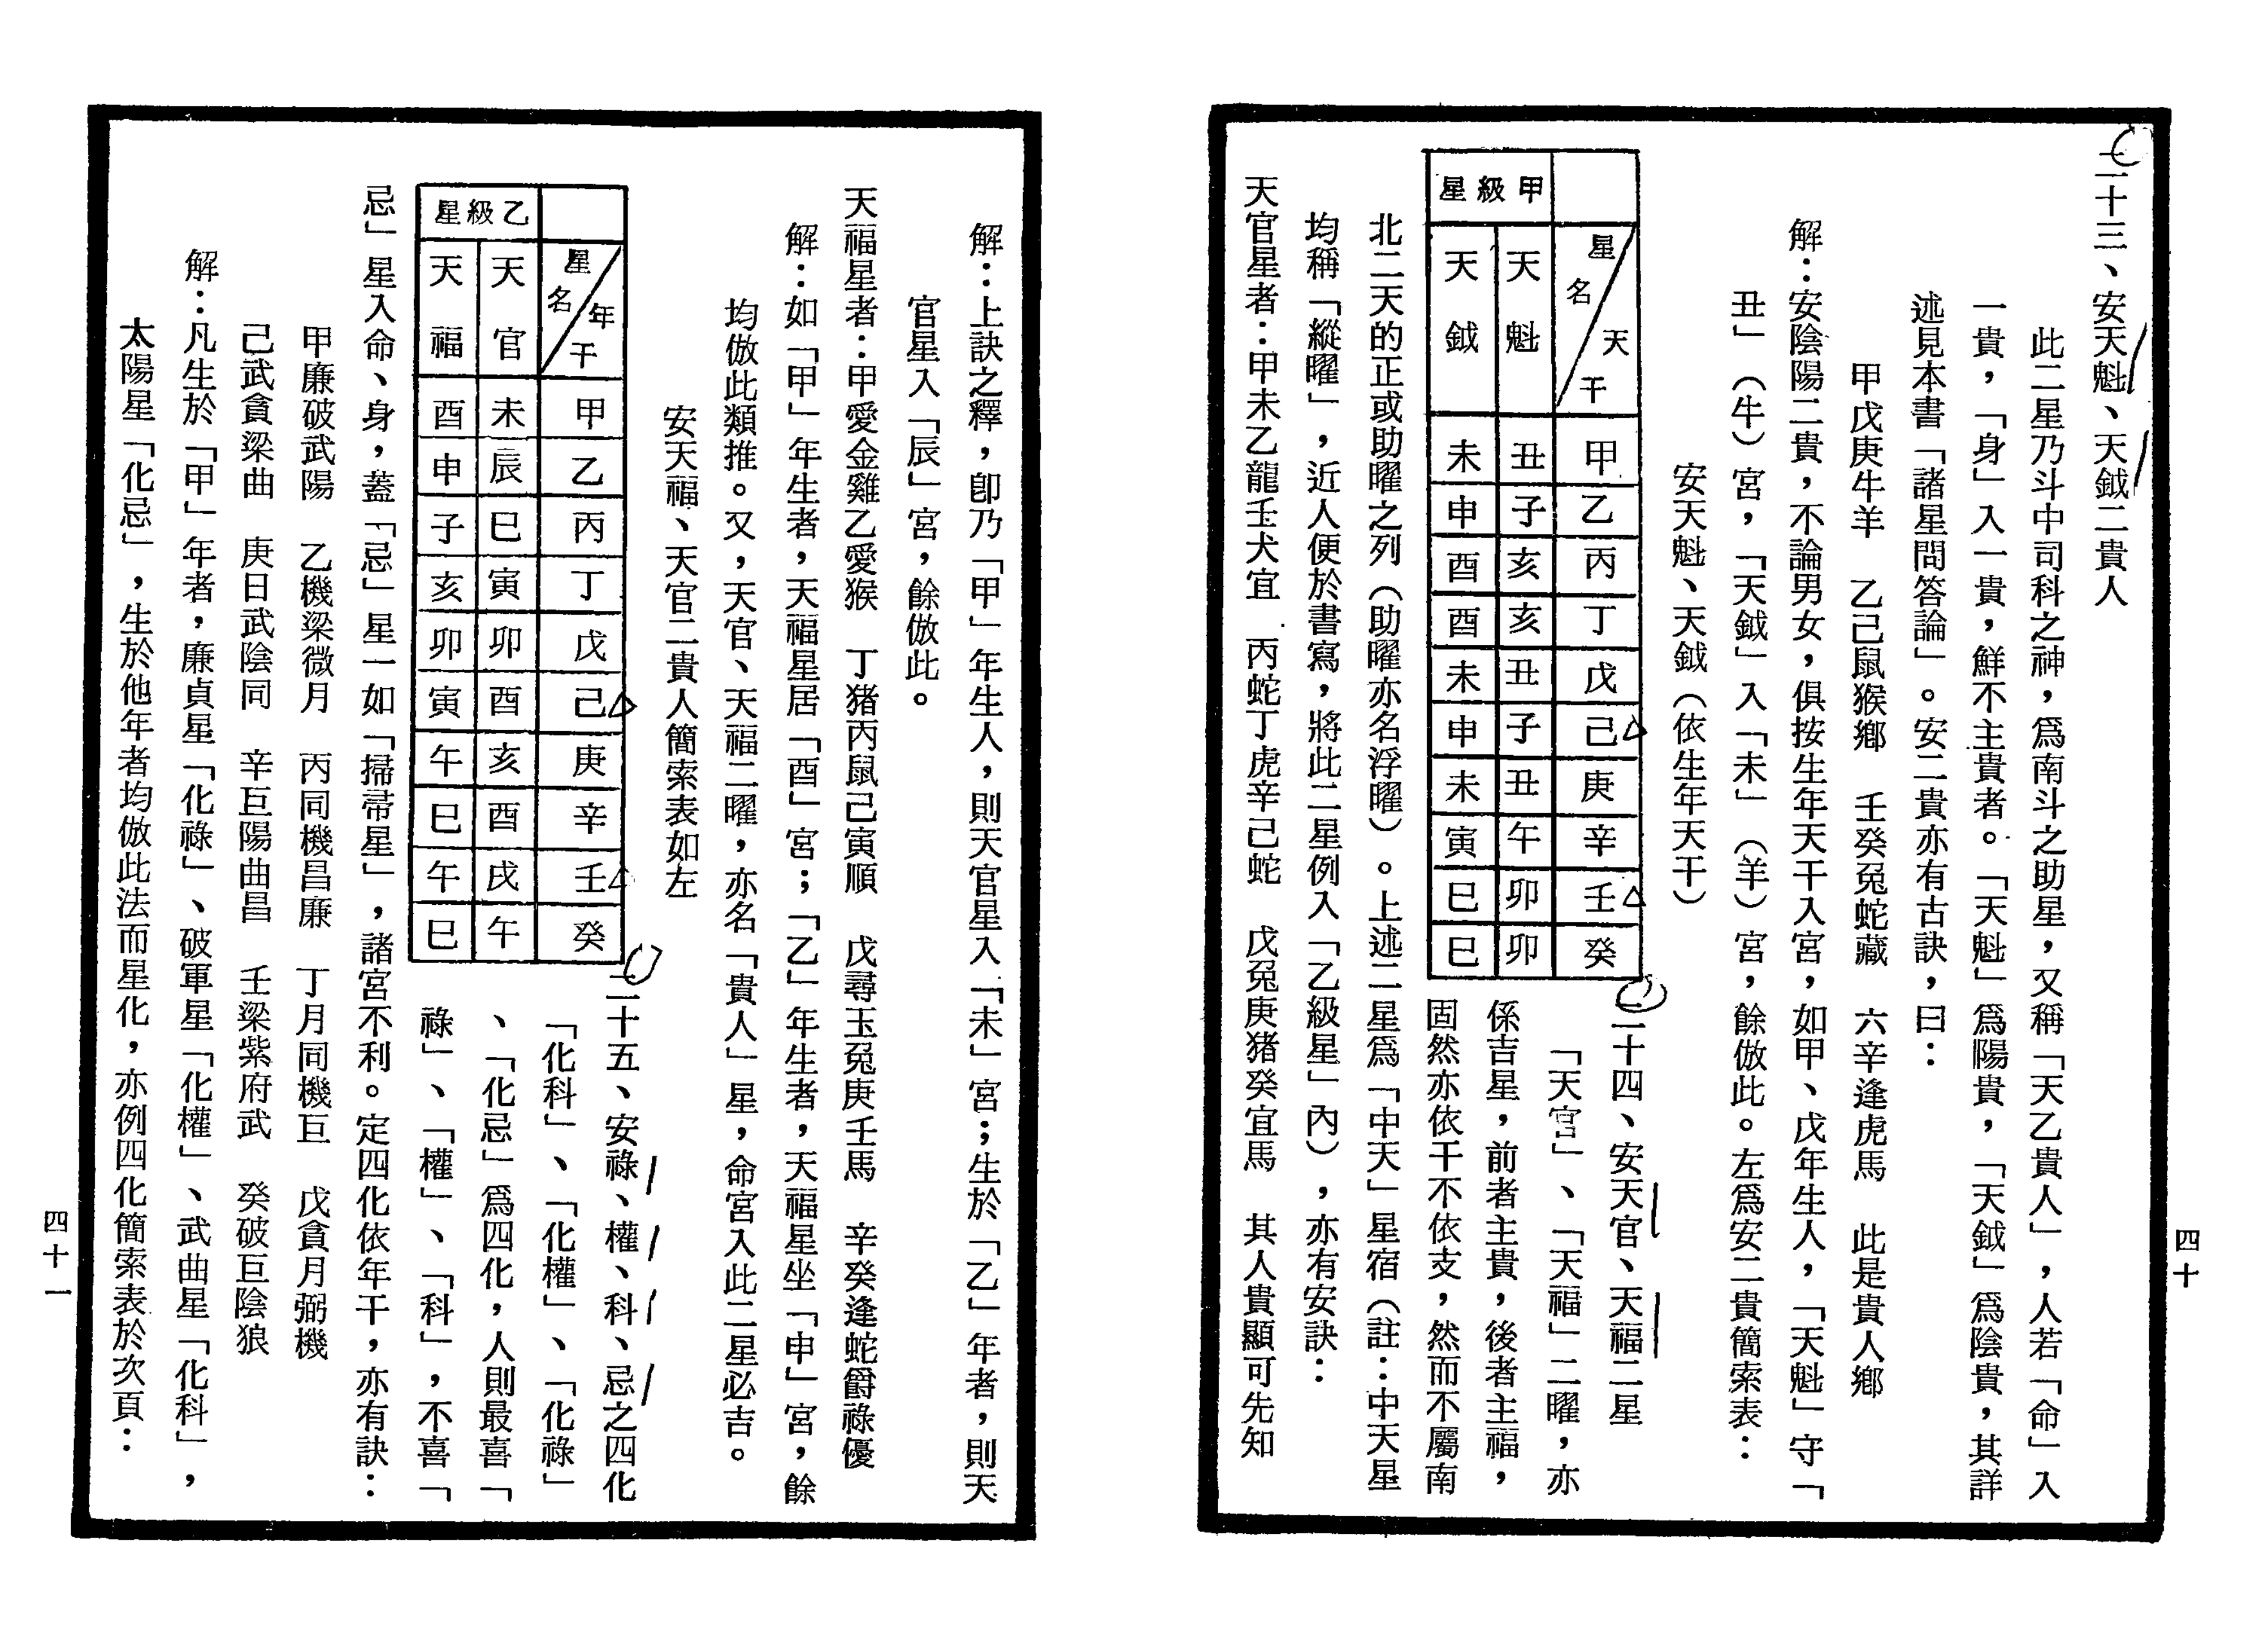 二十三、安天魁、天鉞二貴人
此二星乃斗中司科之神，爲南斗之助星，又稱「天乙貴人」，人若「命」入
一貴，「身」入一貴，鮮不主貴者。「天魁」爲陽貴，「天鉞」爲陰貴，其詳
述見本書「諸星問答論」。安二貴亦有古訣，曰：
甲戊庚牛羊　乙己鼠猴鄉　壬癸兔蛇藏　六辛逢虎馬　此是貴人鄉
解：安陰陽二貴，不論男女，俱按生年天干入宮，如甲、戊年生人，「天魁」守「
丑」（牛）宮，「天鉞」入「未」（羊）宮，餘倣此。左爲安二貴簡索表：
安天魁、天鉞（依生年天干）
甲級星
星名　天干　甲　乙　丙　丁　戊　己　庚　辛　壬　癸
天魁　丑　子　亥　亥　丑　子　丑　午　卯　卯
天鉞　未　申　酉　酉　未　申　未　寅　巳　巳
二十四、安天官、天福二星
「天官」、「天福」二曜，亦
係吉星，前者主貴，後者主福，
固然亦依干不依支，然而不屬南
北二天的正或助曜之列（助曜亦名浮曜）。上述二星爲「中天」星宿（註：中天星
均稱「縱曜」，近人便於書寫，將此二星例入「乙級星」內），亦有安訣：
天官星者：甲未乙龍壬犬宜　丙蛇丁虎辛己蛇　戊兔庚猪癸宜馬　其人貴顯可先知
四十
解：上訣之釋，卽乃「甲」年生人，則天官星入「未」宮；生於「乙」年者，則天
官星入「辰」宮，餘倣此。
天福星者：甲愛金雞乙愛猴　丁猪丙鼠己寅順　戊尋玉兔庚壬馬　辛癸逢蛇爵祿優
解：如「甲」年生者，天福星居「酉」宮；「乙」年生者，天福星坐「申」宮，餘
均倣此類推。又，天官、天福二曜，亦名「貴人」星，命宮入此二星必吉。
安天福、天官二貴人簡索表如左
乙級星
星名　年干　甲　乙　丙　丁　戊　己　庚　辛　壬　癸
天官　未　辰　巳　寅　卯　酉　亥　酉　戌　午
天福　酉　申　子　亥　卯　寅　午　巳　午　巳
二十五、安祿、權、科、忌之四化
「化科」、「化權」、「化祿」
、「化忌」爲四化，人則最喜「
祿」、「權」、「科」，不喜「
忌」星入命、身，蓋「忌」星一如「掃帚星」，諸宮不利。定四化依年干，亦有訣：
甲廉破武陽　乙機梁微月　丙同機昌廉　丁月同機巨　戊貪月弼機
己武貪梁曲　庚日武陰同　辛巨陽曲昌　壬梁紫府武　癸破巨陰狼
解：凡生於「甲」年者，廉貞星「化祿」、破軍星「化權」、武曲星「化科」，
太陽星「化忌」，生於他年者均倣此法而星化，亦例四化簡索表於次頁：
四十一